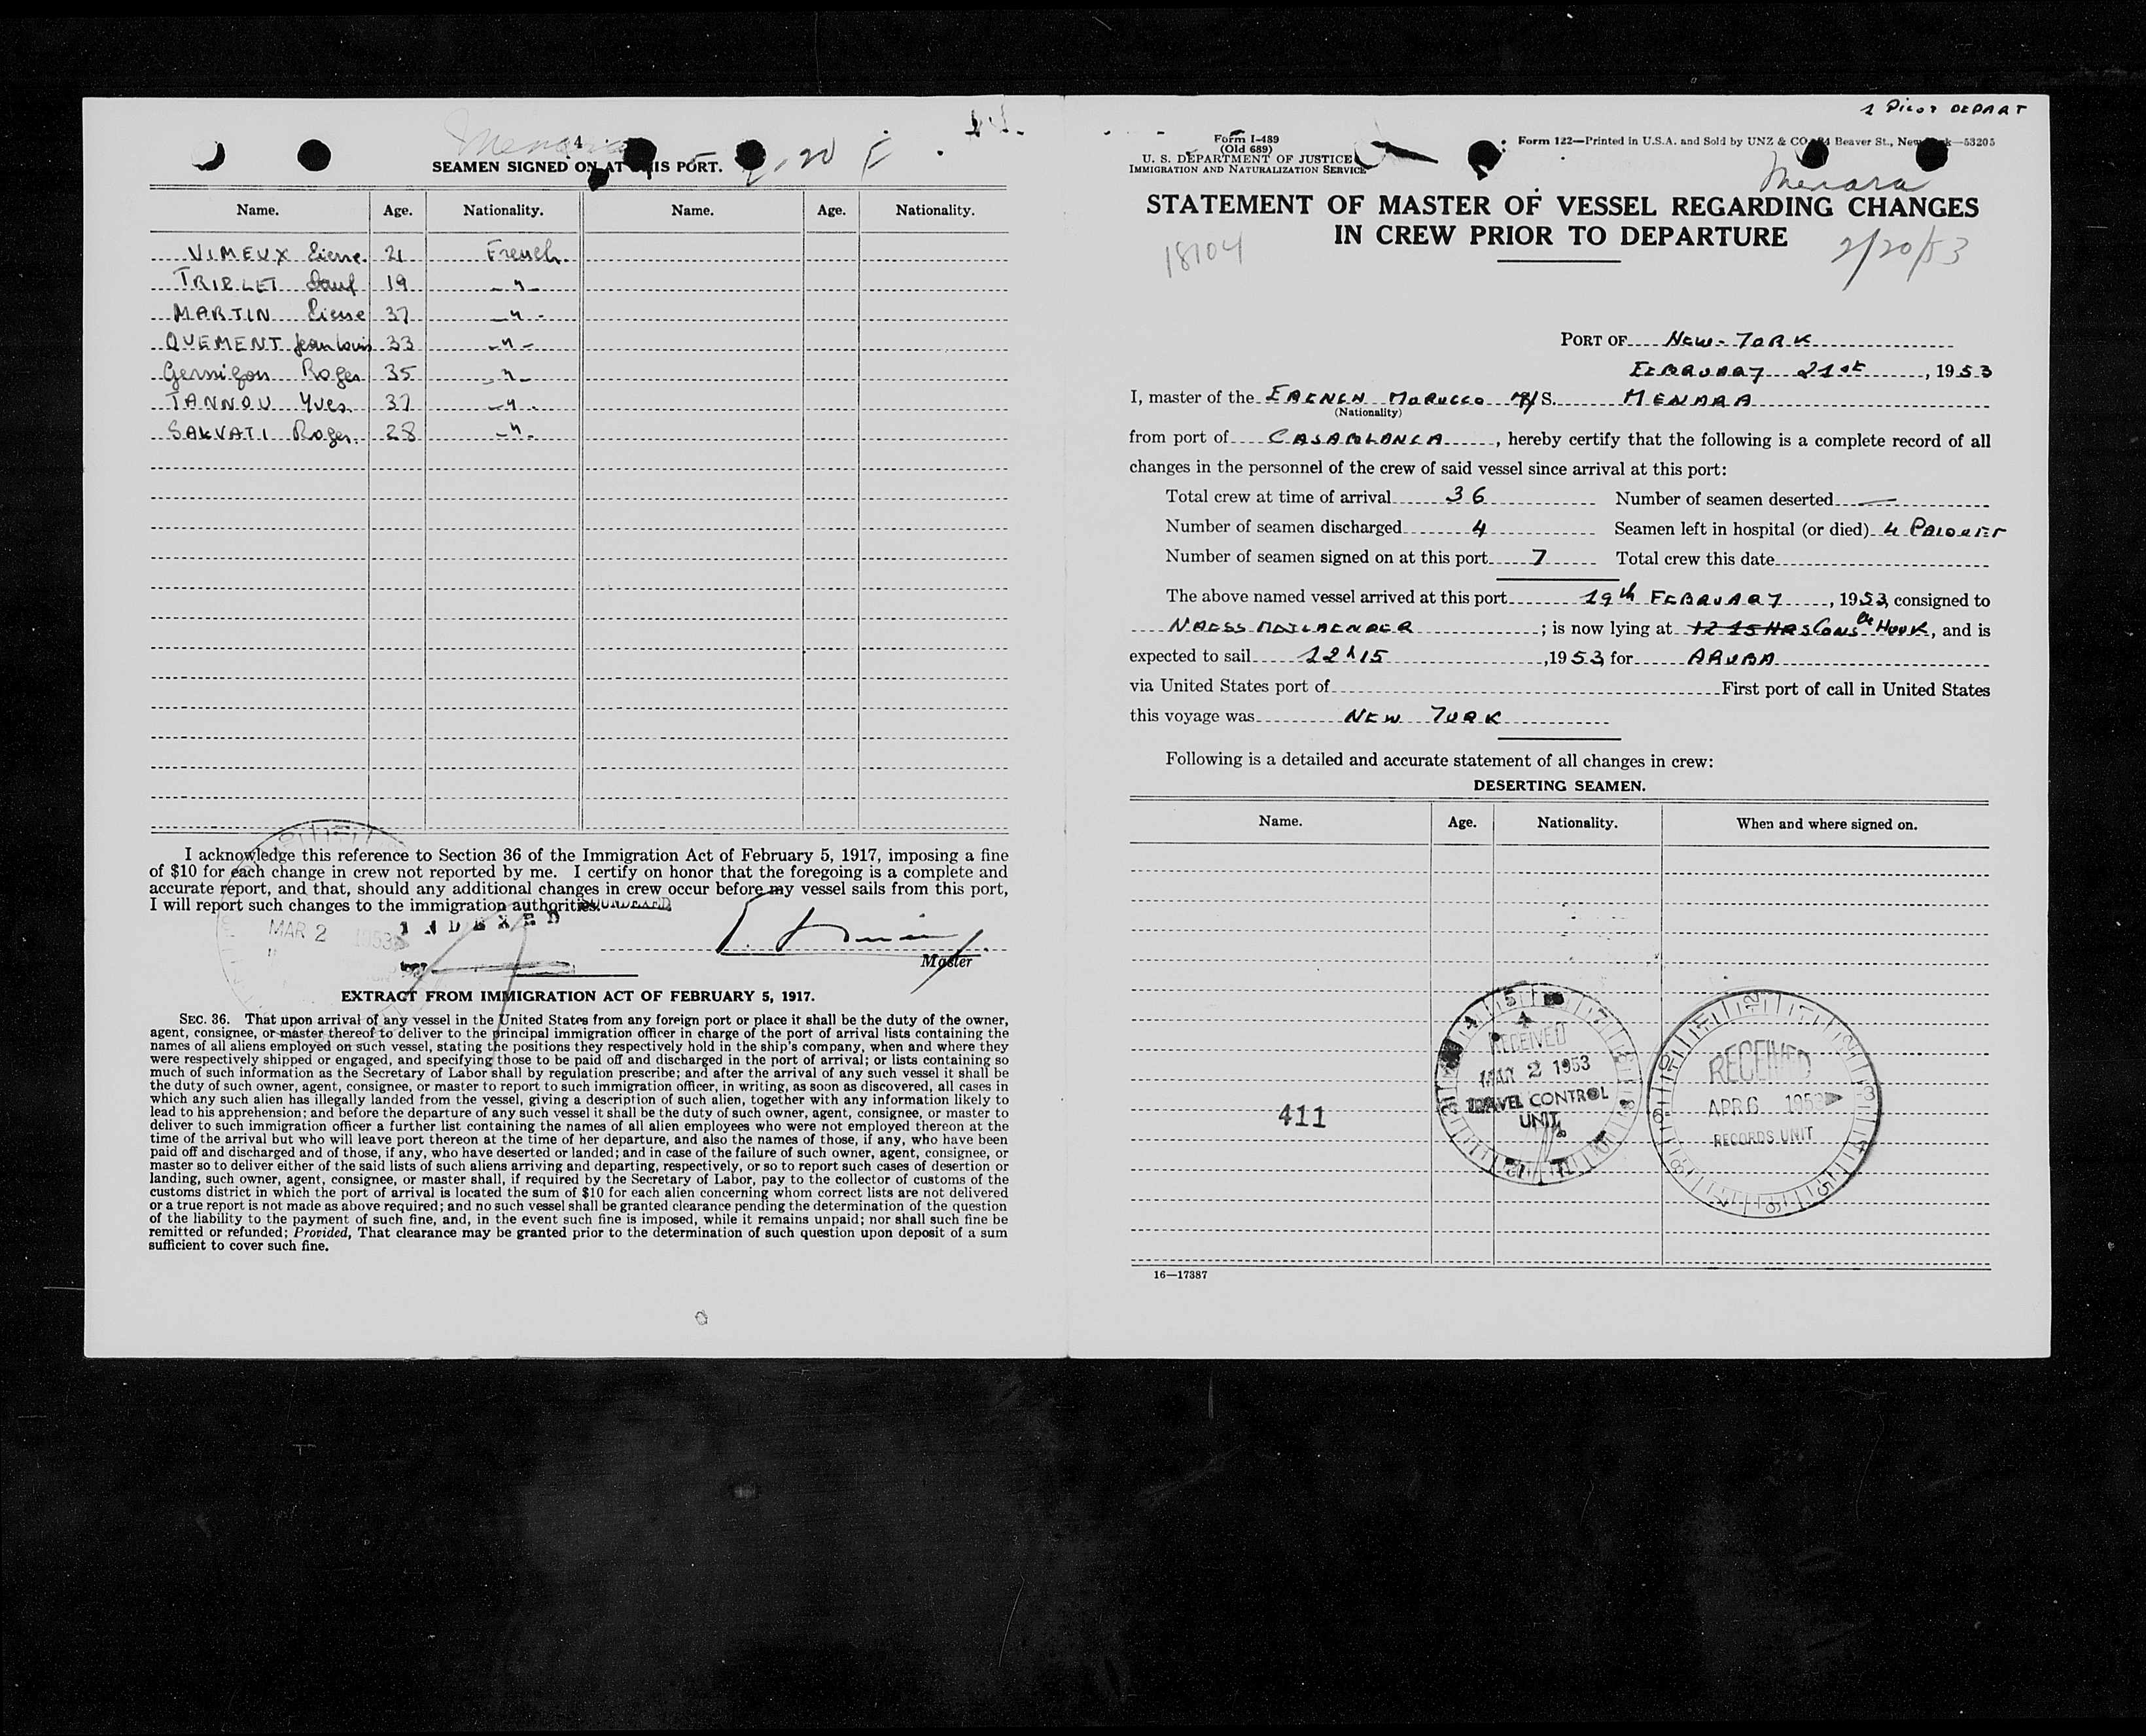 Menara
4
SEAMEN SIGNED ON AT THIS PORT.
Name. Age. Nationality. Name. Age. Nationality.
VIMEUX Pierre 21 French.
TRIPLET Paul 19 -"-
MARTIN Pierre 37 -"-
QUEMENT Jean Louis 33 -"-
Gernigon Roger 35 -"-
TANNOU Yves 37 -"-
SALVATI Roger. 28 -"-
I acknowledge this reference to Section 36 of the Immigration Act of February 5, 1917, imposing a fine
of $10 for each change in crew not reported by me. I certify on honor that the foregoing is a complete and
accurate report, and that, should any additional changes in crew occur before my vessel sails from this port,
I will report such changes to the immigration authorities.
INDEXED
MAR 2 1953
Master
EXTRACT FROM IMMIGRATION ACT OF FEBRUARY 5, 1917.
SEC. 36. That upon arrival of any vessel in the United States from any foreign port or place it shall be the duty of the owner,
agent, consignee, or master thereof to deliver to the principal immigration officer in charge of the port of arrival lists containing the
names of all aliens employed on such vessel, stating the positions they respectively hold in the ship's company, when and where they
were respectively shipped or engaged, and specifying those to be paid off and discharged in the port of arrival; or lists containing so
much of such information as the Secretary of Labor shall by regulation prescribe; and after the arrival of any such vessel it shall be
the duty of such owner, agent, consignee, or master to report to such immigration officer, in writing, as soon as discovered, all cases in
which any such alien has illegally landed from the vessel, giving a description of such alien, together with any information likely to
lead to his apprehension; and before the departure of any such vessel it shall be the duty of such owner, agent, consignee, or master to
deliver to such immigration officer a further list containing the names of all alien employees who were not employed thereon at the
time of the arrival but who will leave port thereon at the time of her departure, and also the names of those, if any, who have been
paid off and discharged and of those, if any, who have deserted or landed; and in case of the failure of such owner, agent, consignee, or
master so to deliver either of the said lists of such aliens arriving and departing, respectively, or so to report such cases of desertion or
landing, such owner, agent, consignee, or master shall, if required by the Secretary of Labor, pay to the collector of customs of the
customs district in which the port of arrival is located the sum of $10 for each alien concerning whom correct lists are not delivered
or a true report is not made as above required; and no such vessel shall be granted clearance pending the determination of the question
of the liability to the payment of such fine, and, in the event such fine is imposed, while it remains unpaid; nor shall such fine be
remitted or refunded; Provided, That clearance may be granted prior to the determination of such question upon deposit of a sum
sufficient to cover such fine.
DEPART
Form I-489
(Old 689)
U. S. DEPARTMENT OF JUSTICE
IMMIGRATION AND NATURALIZATION SERVICE
Form 122—Printed in U.S.A. and Sold by UNZ & CO. 24 Beaver St., New York—53205
Menara
STATEMENT OF MASTER OF VESSEL REGARDING CHANGES
IN CREW PRIOR TO DEPARTURE
18104
2/20/53
PORT OF NEW-YORK
FEBRUARY 21st, 1953
I, master of the FRENCH MOROCCO M/S. MENARA
(Nationality)
from port of CASABLANCA, hereby certify that the following is a complete record of all
changes in the personnel of the crew of said vessel since arrival at this port:
Total crew at time of arrival 36 Number of seamen deserted —
Number of seamen discharged 4 Seamen left in hospital (or died)
Number of seamen signed on at this port 7 Total crew this date
The above named vessel arrived at this port 19th FEBRUARY, 1953, consigned to
; is now lying at 12 15 HRS Cons HOOK, and is
expected to sail 12h15, 1953, for ARUBA
via United States port of First port of call in United States
this voyage was NEW YORK
Following is a detailed and accurate statement of all changes in crew:
DESERTING SEAMEN.
Name. Age. Nationality. When and where signed on.
RECEIVED
MAR 2 1953
TRAVEL CONTROL
UNIT
RECEIVED
APR 6 1953
RECORDS UNIT
411
16—17387